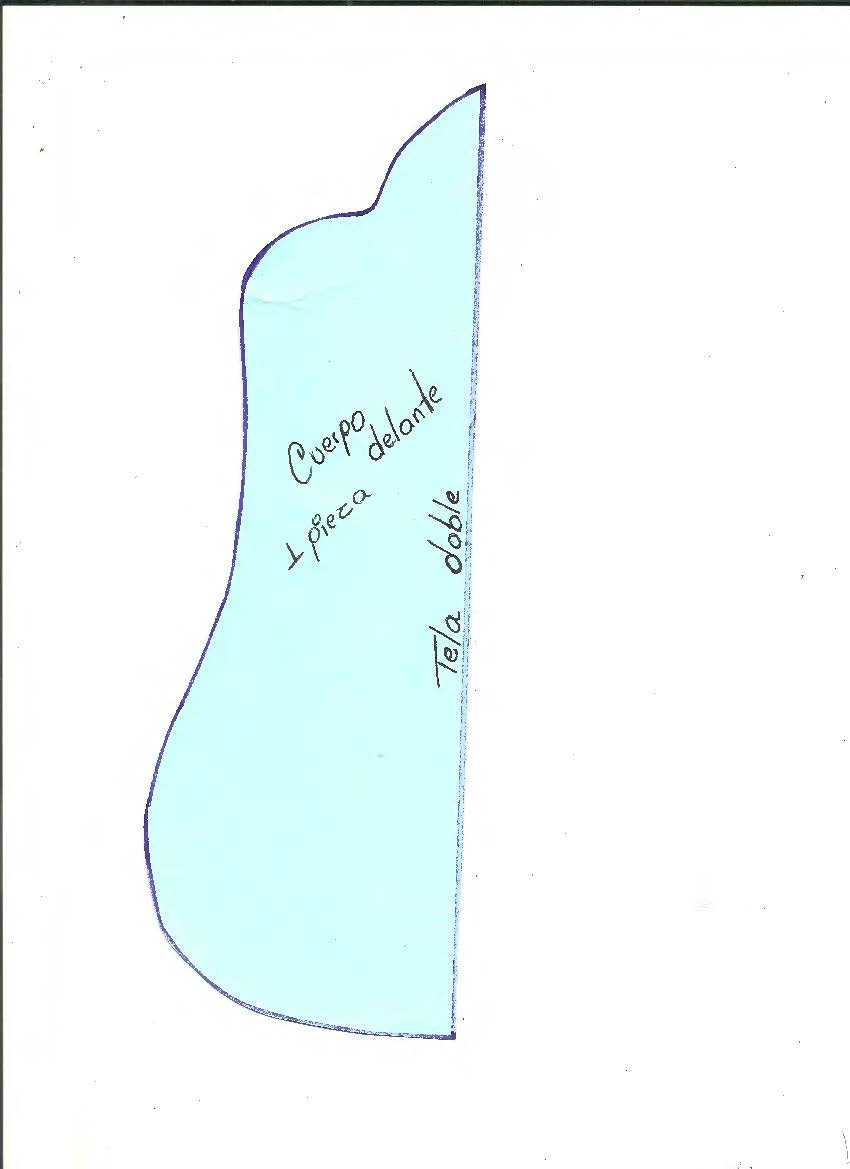 Cuerpo
delante
1 pieza
Tela doble